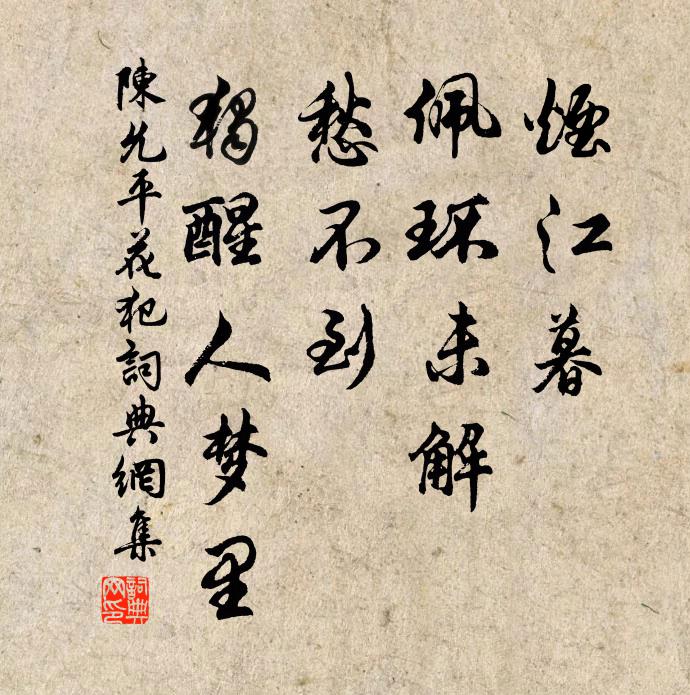 煙江暮
佩環未解
愁不到
獨醒人梦里
陳允平花犯詞典網集
詞典
网印